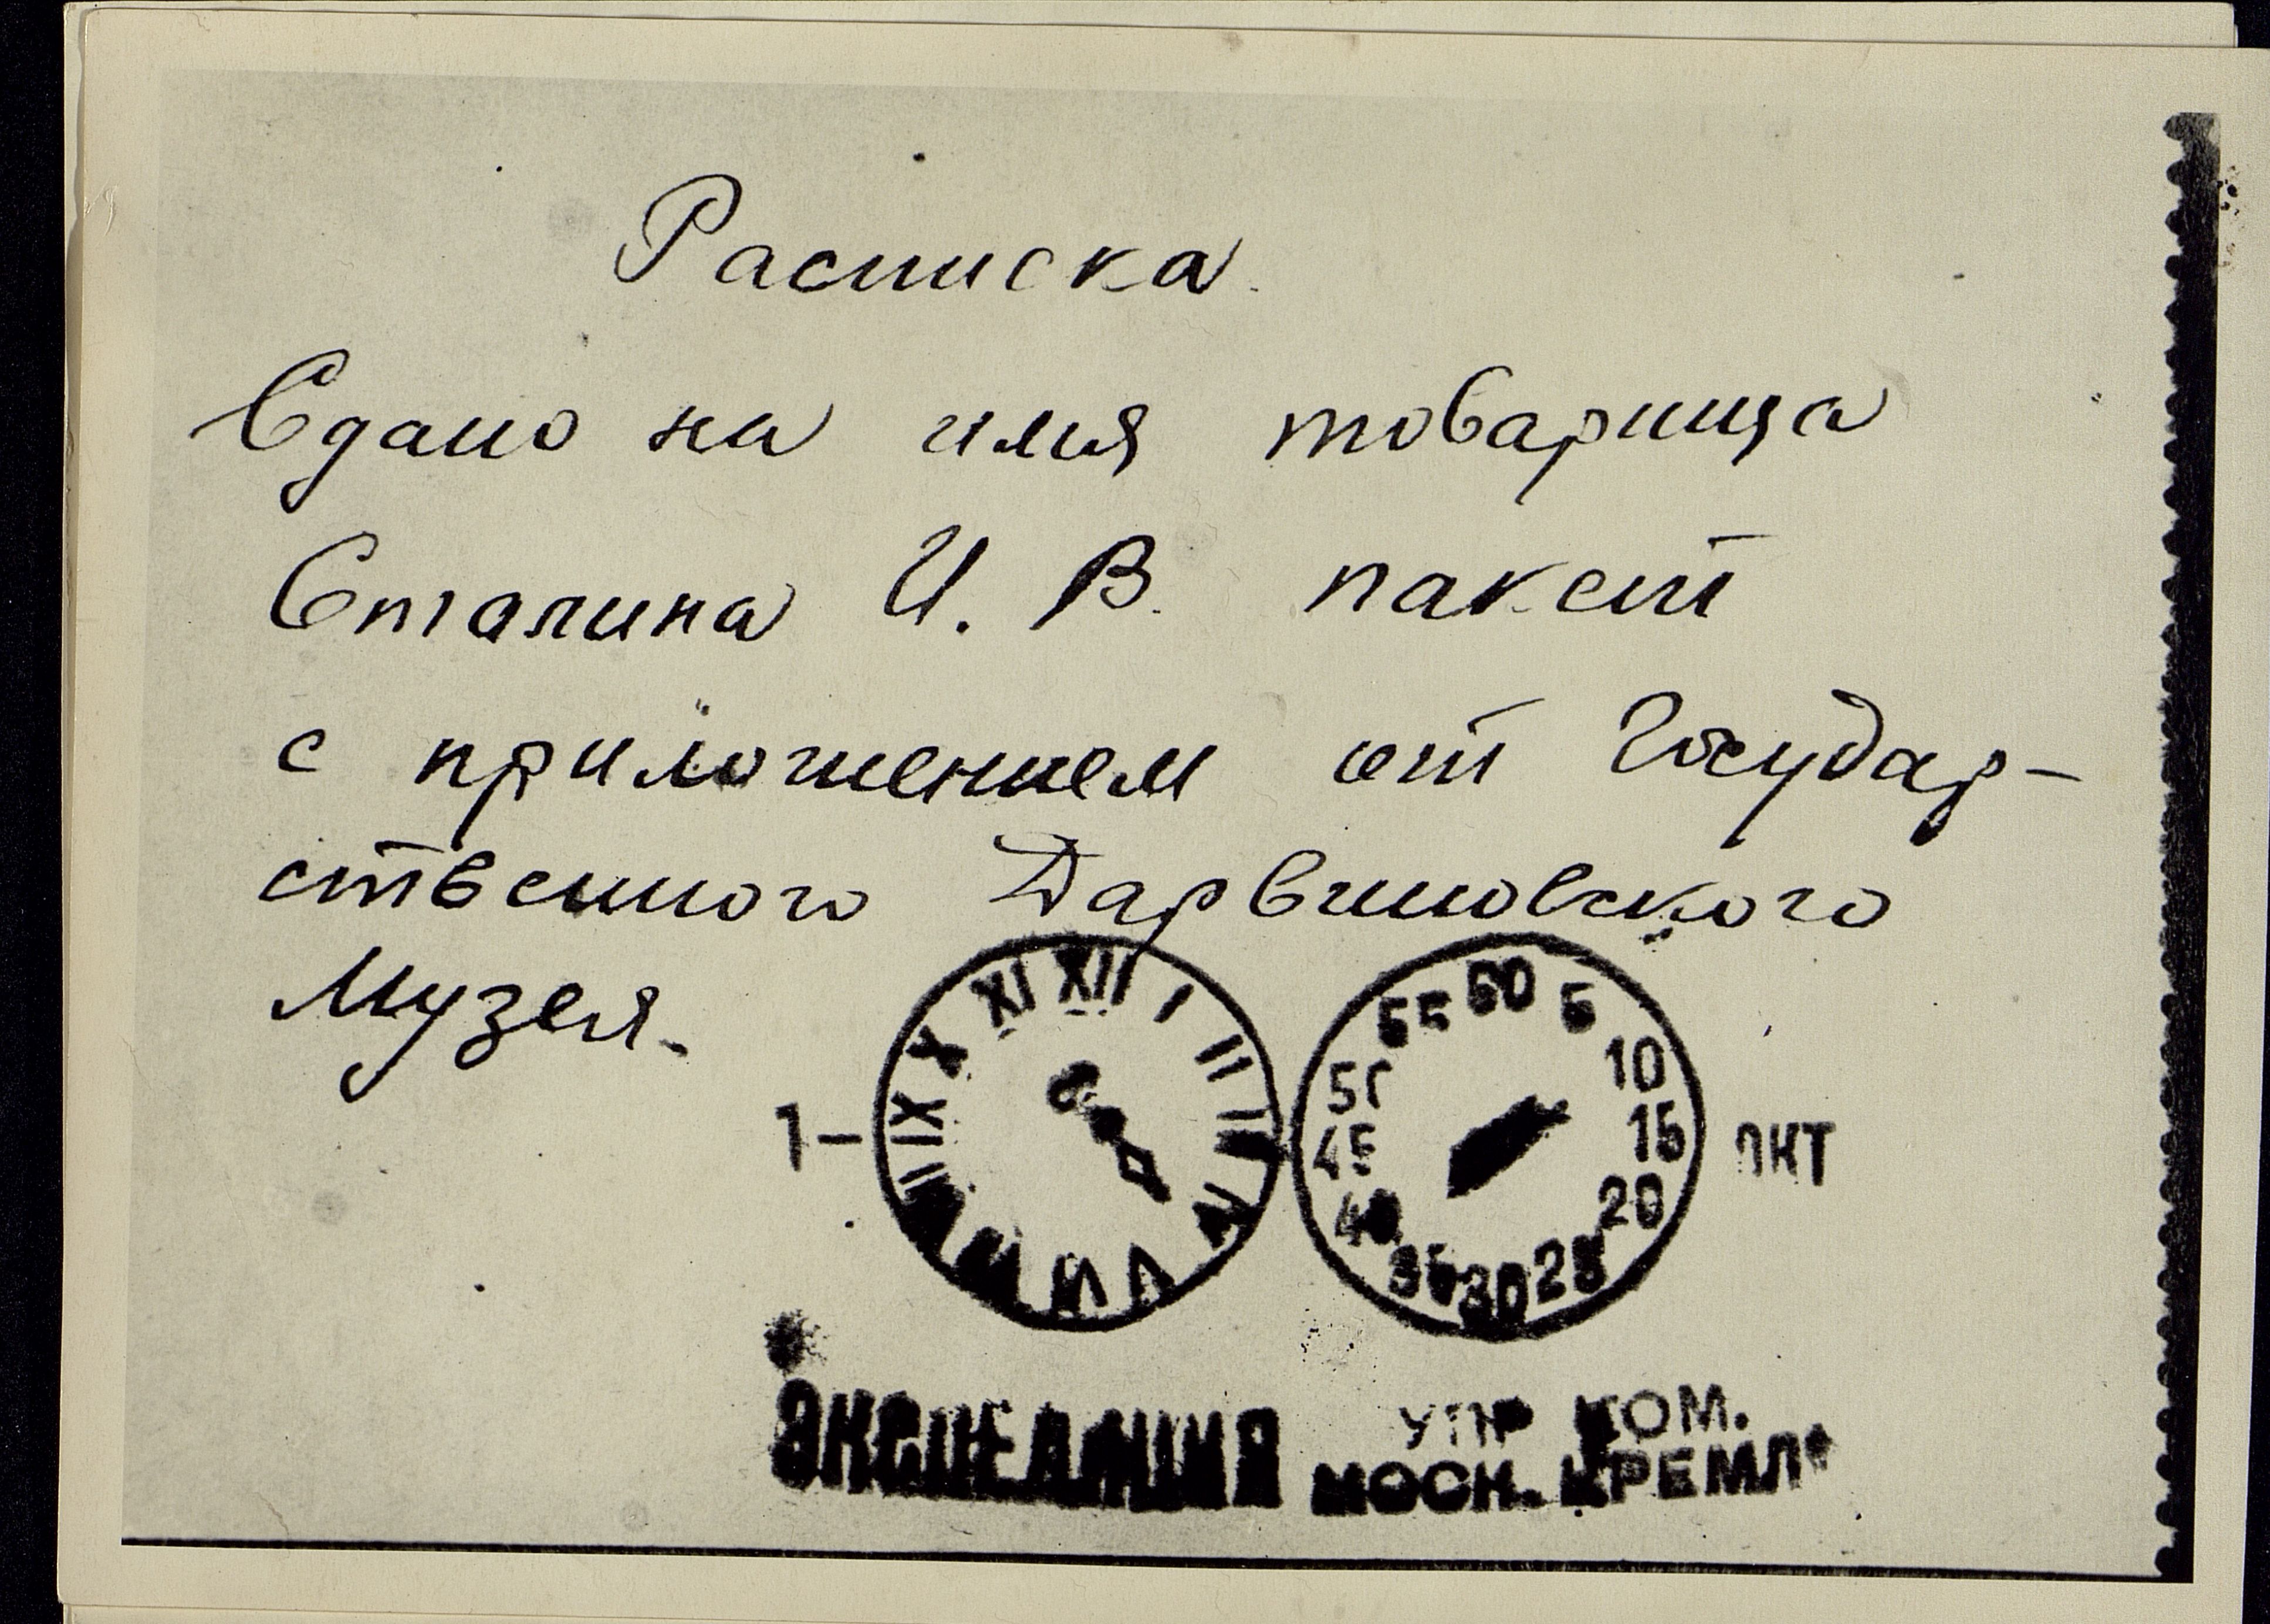 Расписка.
Сдано на имя товарища
Сталина И. В. пакет
с приложением от Государ-
ственного Дарвиновского
Музея.
XII I II III IV V VI VII VIII IX X XI
60 5 10 15 20 25 30 35 40 45 50 55
1- ОКТ
ЭКСПЕДИЦИЯ УПР КОМ.
МОСК. КРЕМЛЯ